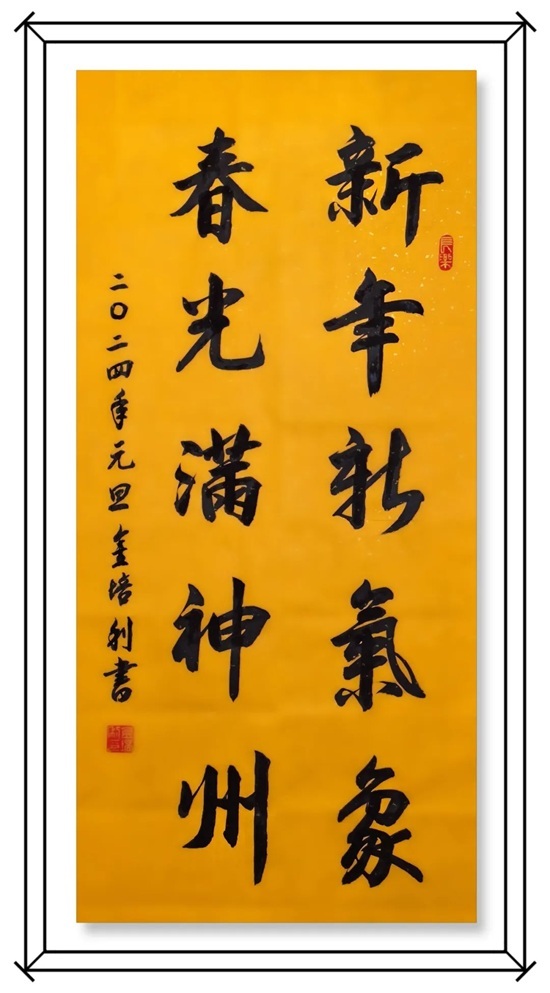 新年新氣象
春光滿神州
二〇二四年元旦金培利書